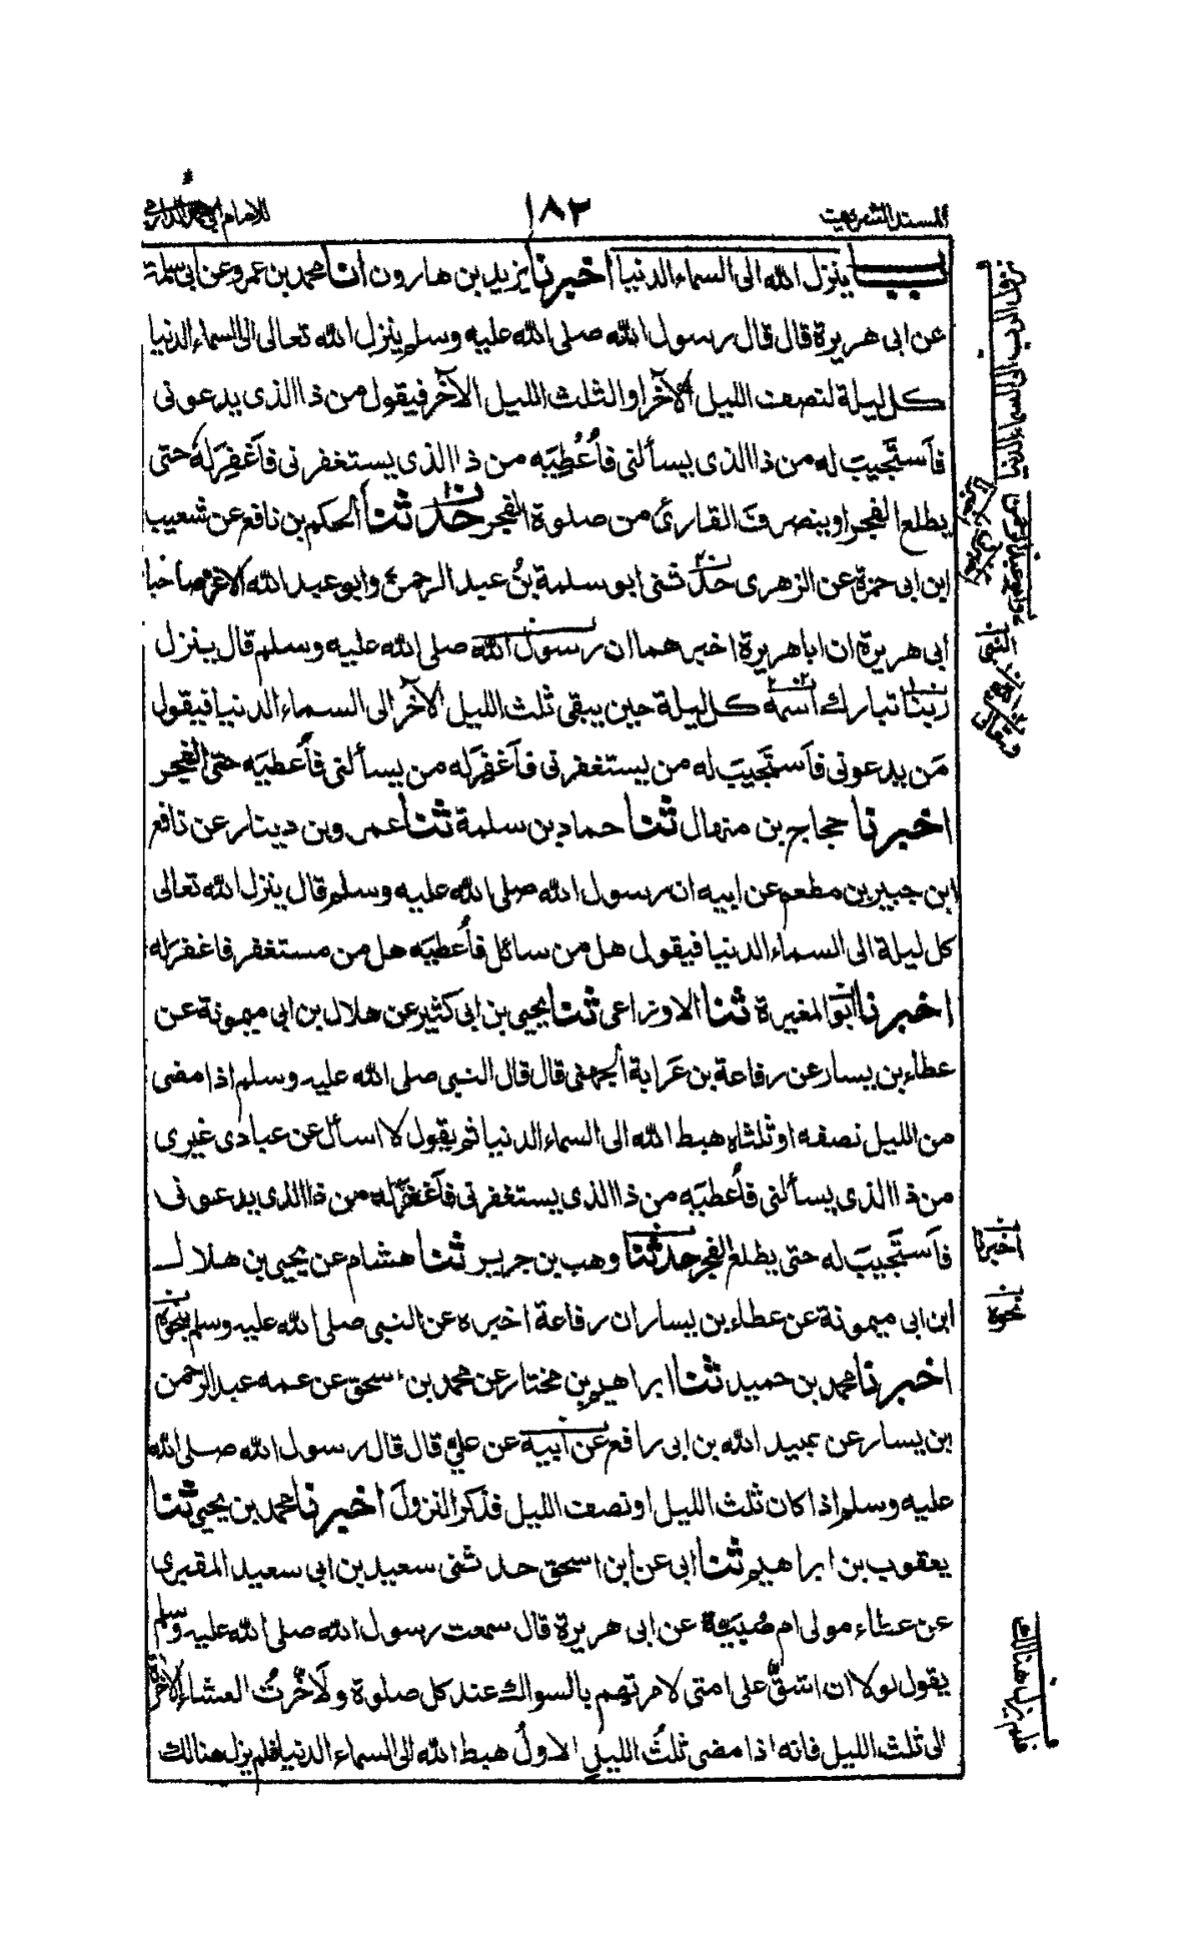 المسند الشريف
١٨٢
للامام ابي محمد الدارمي
باب ينزل الله الى السماء الدنيا اخبرنا يزيد بن هارون انا محمد بن عمرو عن ابى سلمة
عن ابى هريرة قال قال رسول الله صلى الله عليه وسلم ينزل الله تعالى الى السماء الدنيا
كل ليلة لنصف الليل الآخر او الثلث الليل الآخر فيقول من ذا الذى يدعونى
فاَستَجيبَ له من ذا الذى يسألنى فاُعْطِيَه من ذا الذى يستغفرنى فاَغفِرَ لهُ حتى
يطلع الفجر او ينصرفَ القارئ من صلوة الفجر حدثنا الحكم بن نافع عن شعيب
ابن ابى حمزة عن الزهرى حدثنى ابو سلمة بنُ عبد الرحمن وابو عبد الله الاغر صاحبا
ابى هريرة ان ابا هريرة اخبرهما ان رسول الله صلى الله عليه وسلم قال ينزل
ربنا تبارك اسمه كل ليلة حين يبقى ثلث الليل الآخر الى السماء الدنيا فيقول
مَن يدعونى فاَستَجيبَ له من يستغفرنى فاَغفِرَ له من يسألنى فاُعطيَه حتى الفجر
اخبرنا حجاج بن منهال ثنا حماد بن سلمة ثنا عمرو بن دينار عن نافع
ابن جبير بن مطعم عن ابيه ان رسول الله صلى الله عليه وسلم قال ينزل الله تعالى
كل ليلة الى السماء الدنيا فيقول هل من سائل فاُعطيَه هل من مستغفر فاغفر له
اخبرنا ابو المغيرة ثنا الاوزاعى ثنا يحيى بن ابى كثير عن هلال بن ابى ميمونة عن
عطاء بن يسار عن رفاعة بن عَرابة الجهنى قال قال النبى صلى الله عليه وسلم اذا مضى
من الليل نصفه او ثلثاه هبط الله الى السماء الدنيا ثم يقول لا اسأل عن عبادى غيرى
من ذا الذى يسألنى فاُعطيَه من ذا الذى يستغفرنى فاَغفرَ له من ذا الذى يدعونى
فاَستَجيبَ له حتى يطلع الفجر حدثنا وهب بن جرير ثنا هشام عن يحيى بن هلال
ابن ابى ميمونة عن عطاء بن يسار ان رفاعة اخبره عن النبى صلى الله عليه وسلم بنحوه
اخبرنا محمد بن حميد ثنا ابراهيم بن مختار عن محمد بن اسحق عن عمه عبد الرحمن
بن يسار عن عبيد الله بن ابى رافع عن ابيه عن علي قال قال رسول الله صلى الله
عليه وسلم اذا كان ثلث الليل او نصف الليل فذكر النزولَ اخبرنا محمد بن يحيى ثنا
يعقوب بن ابراهيم ثنا ابى عن ابن اسحق حدثنى سعيد بن ابى سعيد المقبرى
عن عطاء مولى ام صُبَيَّة عن ابى هريرة قال سمعت رسول الله صلى الله عليه وسلم
يقول لولا ان اشقَّ على امتى لامرتهم بالسواك عند كل صلوة ولَاَخّرتُ العشاء الآخرة
الى ثلث الليل فانه اذا مضى ثلثُ الليلِ الاولُ هبط الله الى السماء الدنيا فلم يزل هنالك
النبى
وتعالى
اخبرنا
نحوه
فلم يزل هنالك